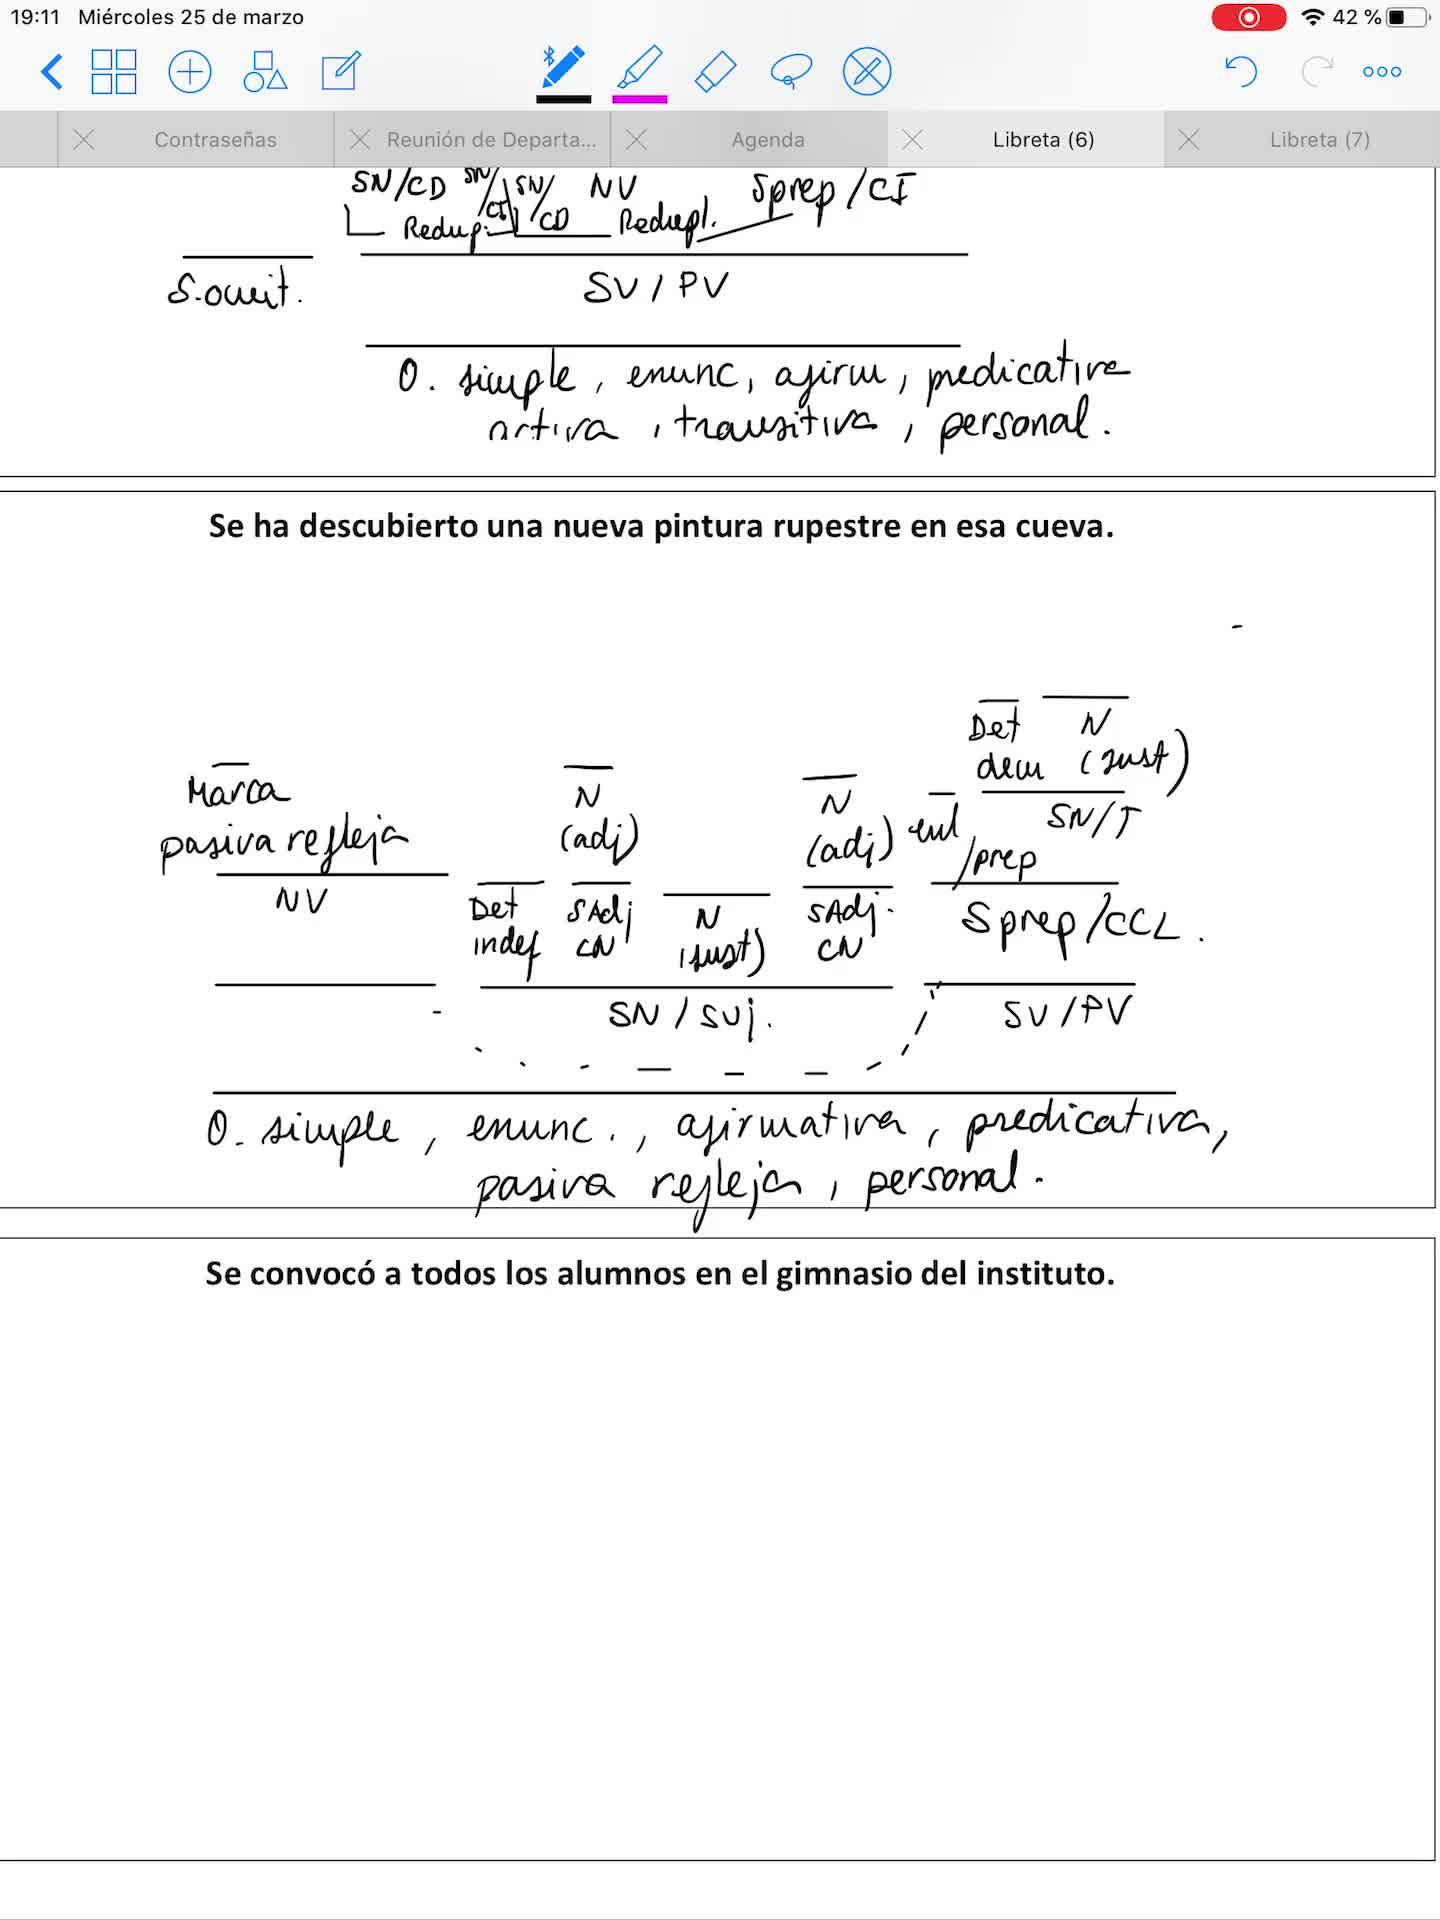 19:11 Miércoles 25 de marzo 42 %
Contraseñas Reunión de Departa... Agenda Libreta (6) Libreta (7)
SN/CD SN/CI SN/CD NV Sprep/CI
Redup. Redupl.
S.omit. SV/PV
O. simple, enunc, afirm, predicativa
activa, transitiva, personal.
Se ha descubierto una nueva pintura rupestre en esa cueva.
Det N
dem (sust)
Marca N N SN/T
pasiva refleja (adj) (adj) enl/prep
NV Det SAdj N SAdj. Sprep/CCL.
indef CN (sust) CN
SN/Suj. SV/PV
O. simple, enunc., afirmativa, predicativa,
pasiva refleja, personal.
Se convocó a todos los alumnos en el gimnasio del instituto.